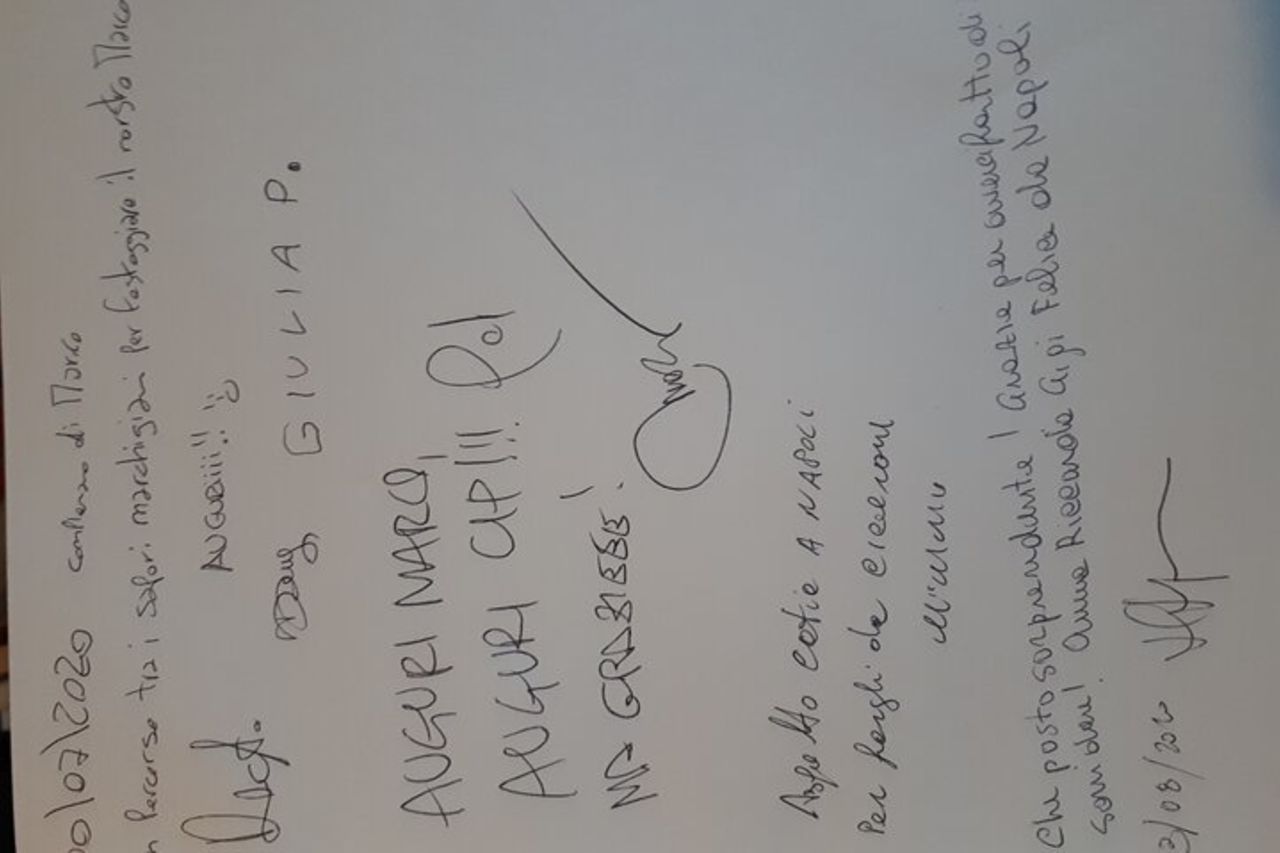 0/07/2020 compleanno di Marco
n Percorso tra i sapori marchigiani per festeggiare il nostro Marco
AUGURIIII!!! :)
GIULIA P.
AUGURI MARCO!
AUGURI CIP!!!
MA GRAZIEEE!
Aspetto Letie A NAPOLI
Per fargli da Cicerone
Mimmo
Che posto sorprendente! Grazie per averci fatto di
Anna Riccardo Gigi Felice da Napoli
2/08/2020